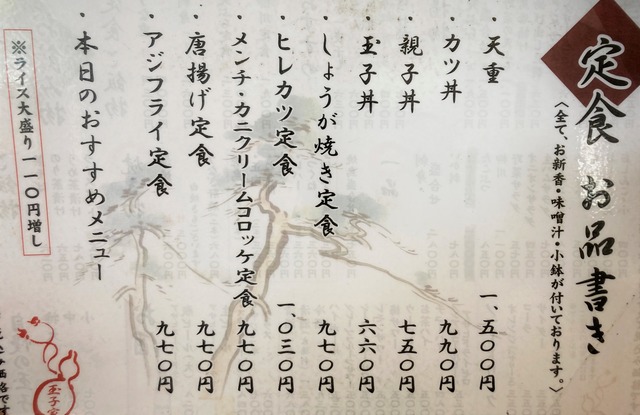 定食 お品書き
〈全て、お新香・味噌汁・小鉢が付いております。〉
・天重 一、五〇〇円
・カツ丼 九九〇円
・親子丼 七五〇円
・玉子丼 六六〇円
・しょうが焼き定食 九七〇円
・ヒレカツ定食 一、〇三〇円
・メンチ・カニクリームコロッケ定食 九七〇円
・唐揚げ定食 九七〇円
・アジフライ定食 九七〇円
・本日のおすすめメニュー
※ライス大盛り一一〇円増し